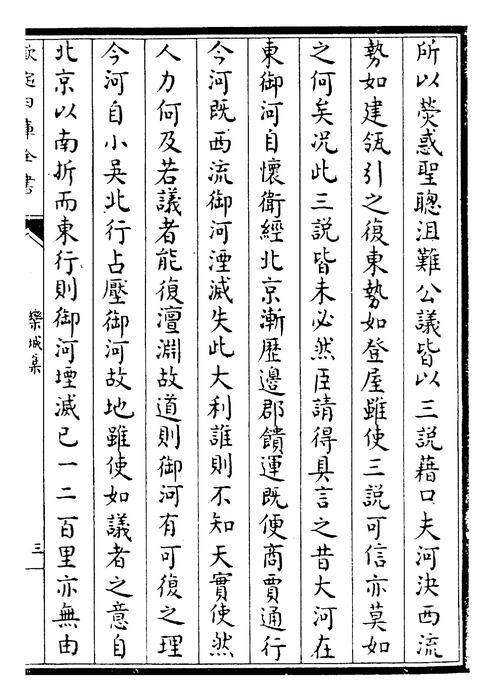 所以熒惑聖聰沮難公議皆以三說藉口夫河決西流
勢如建瓴引之復東勢如登屋雖使三說可信亦莫如
之何矣况此三說皆未必然臣請得具言之昔大河在
東御河自懷衛經北京漸歴邊郡饋運既便商賈通行
今河既西流御河湮滅失此大利誰則不知天實使然
人力何及若議者能復澶淵故道則御河有可復之理
今河自小吳北行占壓御河故地雖使如議者之意自
北京以南折而東行則御河堙滅已一二百里亦無由
欽定四庫全書
欒城集
三